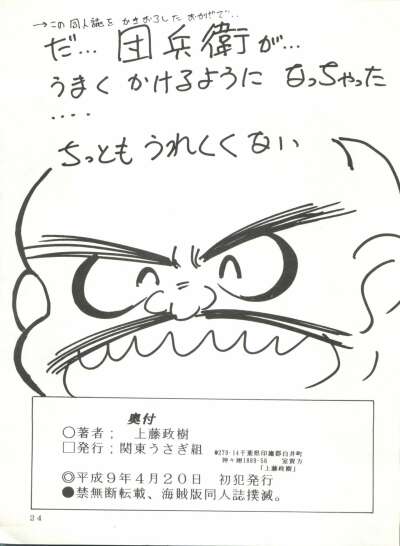 →この同人誌をかきおろしたおかげで‥
だ… 団兵衛が…
うまく かけるように なっちゃった
‥‥
ちっとも うれしくない
奥付
○著者； 上藤政樹
□発行； 関東うさぎ組
◎平成９年４月２０日 初犯発行
●禁無断転載、海賊版同人誌撲滅。
24